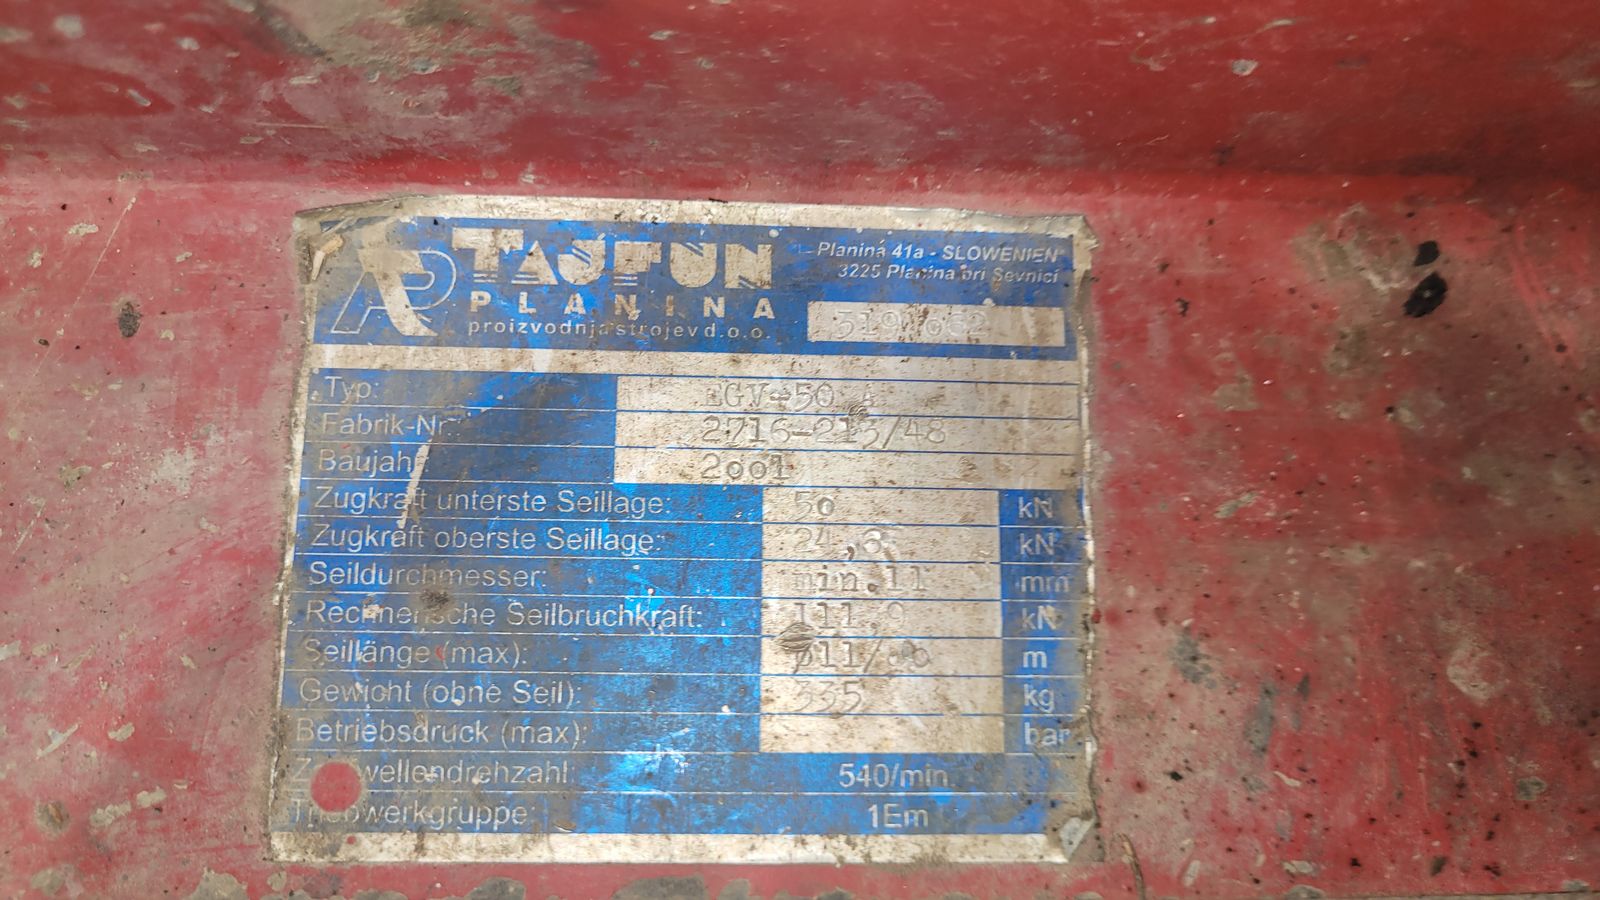 TAJFUN
PLANINA
proizvodnja strojev d.o.o.
Planina 41a - SLOWENIEN
3225 Planina pri Sevnici
Typ: EGV-50 A
Fabrik-Nr.: 2716-213/48
Baujahr: 2001
Zugkraft unterste Seillage: 50 kN
Zugkraft oberste Seillage: 24,6 kN
Seildurchmesser: min.11 mm
Rechnerische Seilbruchkraft: 111,9 kN
Seillänge (max): m
Gewicht (ohne Seil): 335 kg
Betriebsdruck (max): bar
Zapfwellendrehzahl: 540/min
Triebwerkgruppe: 1Em